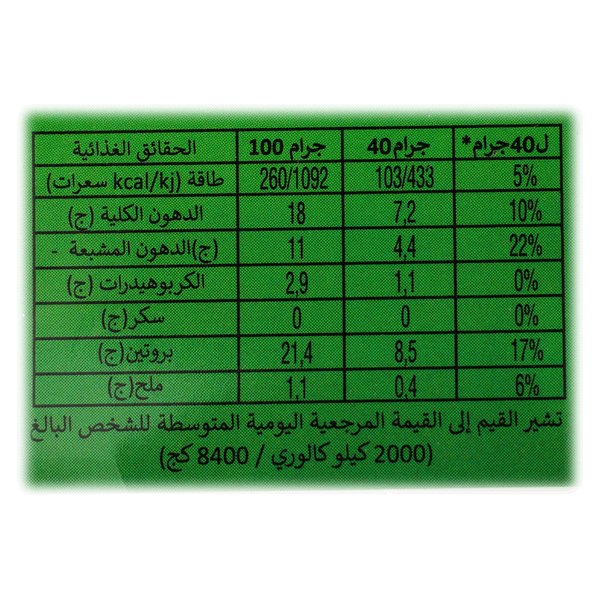 الحقائق الغذائية 100 جرام 40جرام ل40جرام*
طاقة (kcal/kj سعرات) 260/1092 103/433 5%
الدهون الكلية (ج) 18 7,2 10%
(ج)الدهون المشبعة - 11 4,4 22%
الكربوهيدرات (ج) 2,9 1,1 0%
سكر(ج) 0 0 0%
بروتين(ج) 21,4 8,5 17%
ملح(ج) 1,1 0,4 6%
تشير القيم إلى القيمة المرجعية اليومية المتوسطة للشخص البالغ
(2000 كيلو كالوري / 8400 كج)